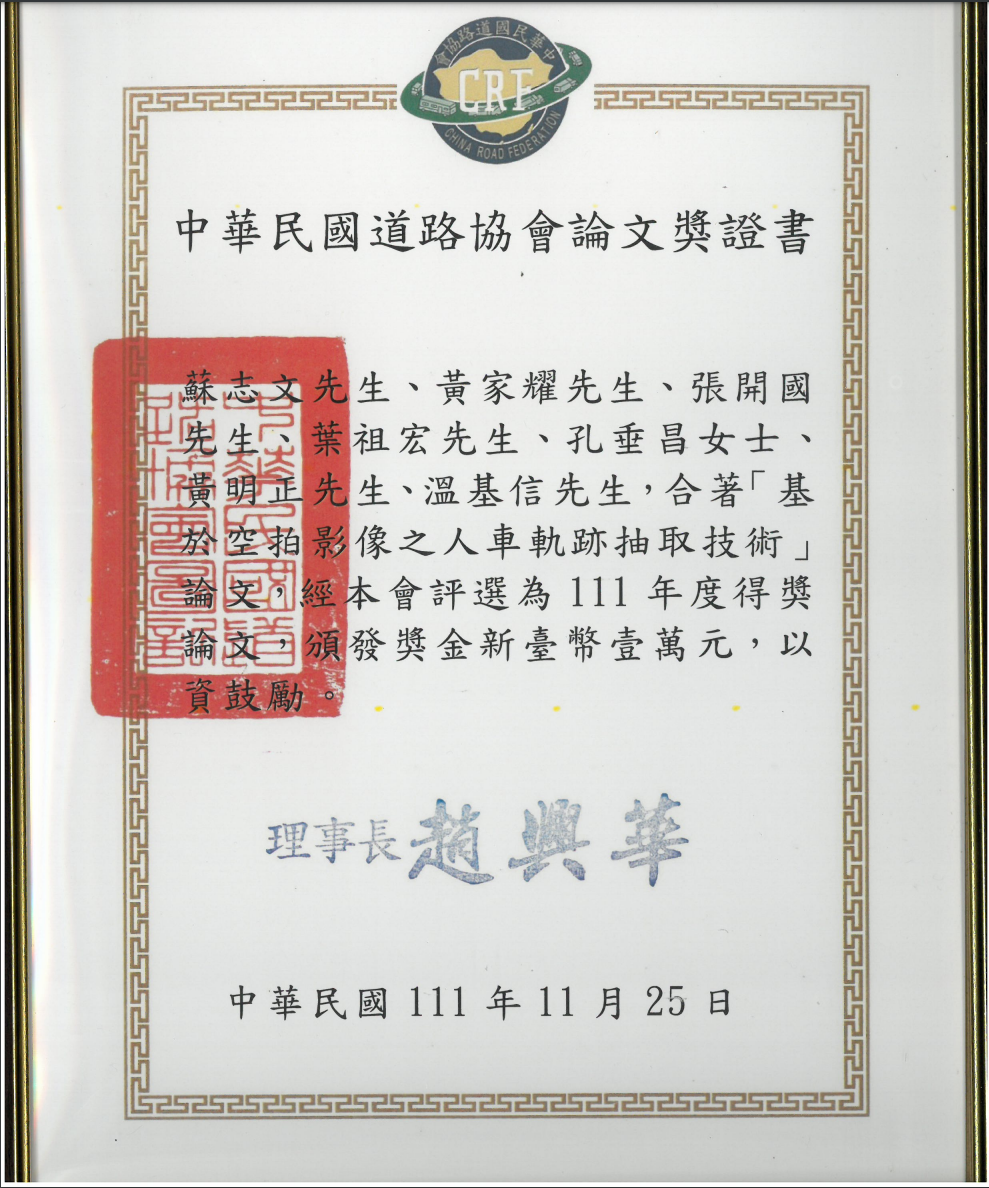 中華民國道路協會
CRF
CHINA ROAD FEDERATION
中華民國道路協會論文獎證書
蘇志文先生、黃家耀先生、張開國
先生、葉祖宏先生、孔垂昌女士、
黃明正先生、溫基信先生，合著「基
於空拍影像之人車軌跡抽取技術」
論文，經本會評選為 111 年度得獎
論文，頒發獎金新臺幣壹萬元，以
資鼓勵。
理事長 趙興華
中華民國 111 年 11 月 25 日